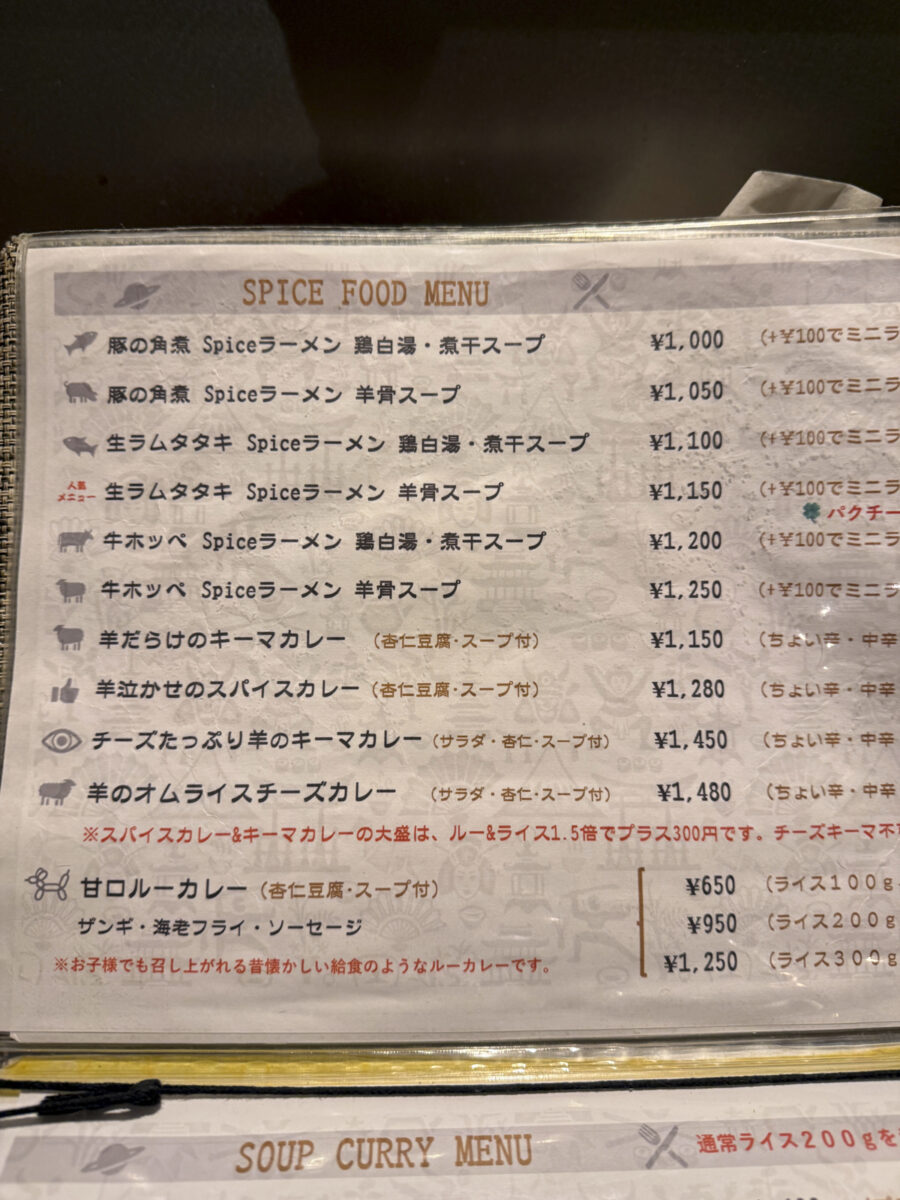 SPICE FOOD MENU
豚の角煮 Spiceラーメン 鶏白湯・煮干スープ ¥1,000 (+¥100でミニラ
豚の角煮 Spiceラーメン 羊骨スープ ¥1,050 (+¥100でミニラ
生ラムタタキ Spiceラーメン 鶏白湯・煮干スープ ¥1,100 (+¥100でミニラ
人気
メニュー 生ラムタタキ Spiceラーメン 羊骨スープ ¥1,150 (+¥100でミニラ
パクチー
牛ホッペ Spiceラーメン 鶏白湯・煮干スープ ¥1,200 (+¥100でミニラ
牛ホッペ Spiceラーメン 羊骨スープ ¥1,250 (+¥100でミニラ
羊だらけのキーマカレー (杏仁豆腐・スープ付) ¥1,150 (ちょい辛・中辛
羊泣かせのスパイスカレー (杏仁豆腐・スープ付) ¥1,280 (ちょい辛・中辛
チーズたっぷり羊のキーマカレー (サラダ・杏仁・スープ付) ¥1,450 (ちょい辛・中辛
羊のオムライスチーズカレー (サラダ・杏仁・スープ付) ¥1,480 (ちょい辛・中辛
※スパイスカレー&キーマカレーの大盛は、ルー&ライス1.5倍でプラス300円です。チーズキーマ不
甘口ルーカレー (杏仁豆腐・スープ付) ¥650 (ライス100g
ザンギ・海老フライ・ソーセージ ¥950 (ライス200g
※お子様でも召し上がれる昔懐かしい給食のようなルーカレーです。 ¥1,250 (ライス300g
SOUP CURRY MENU 通常ライス200gを